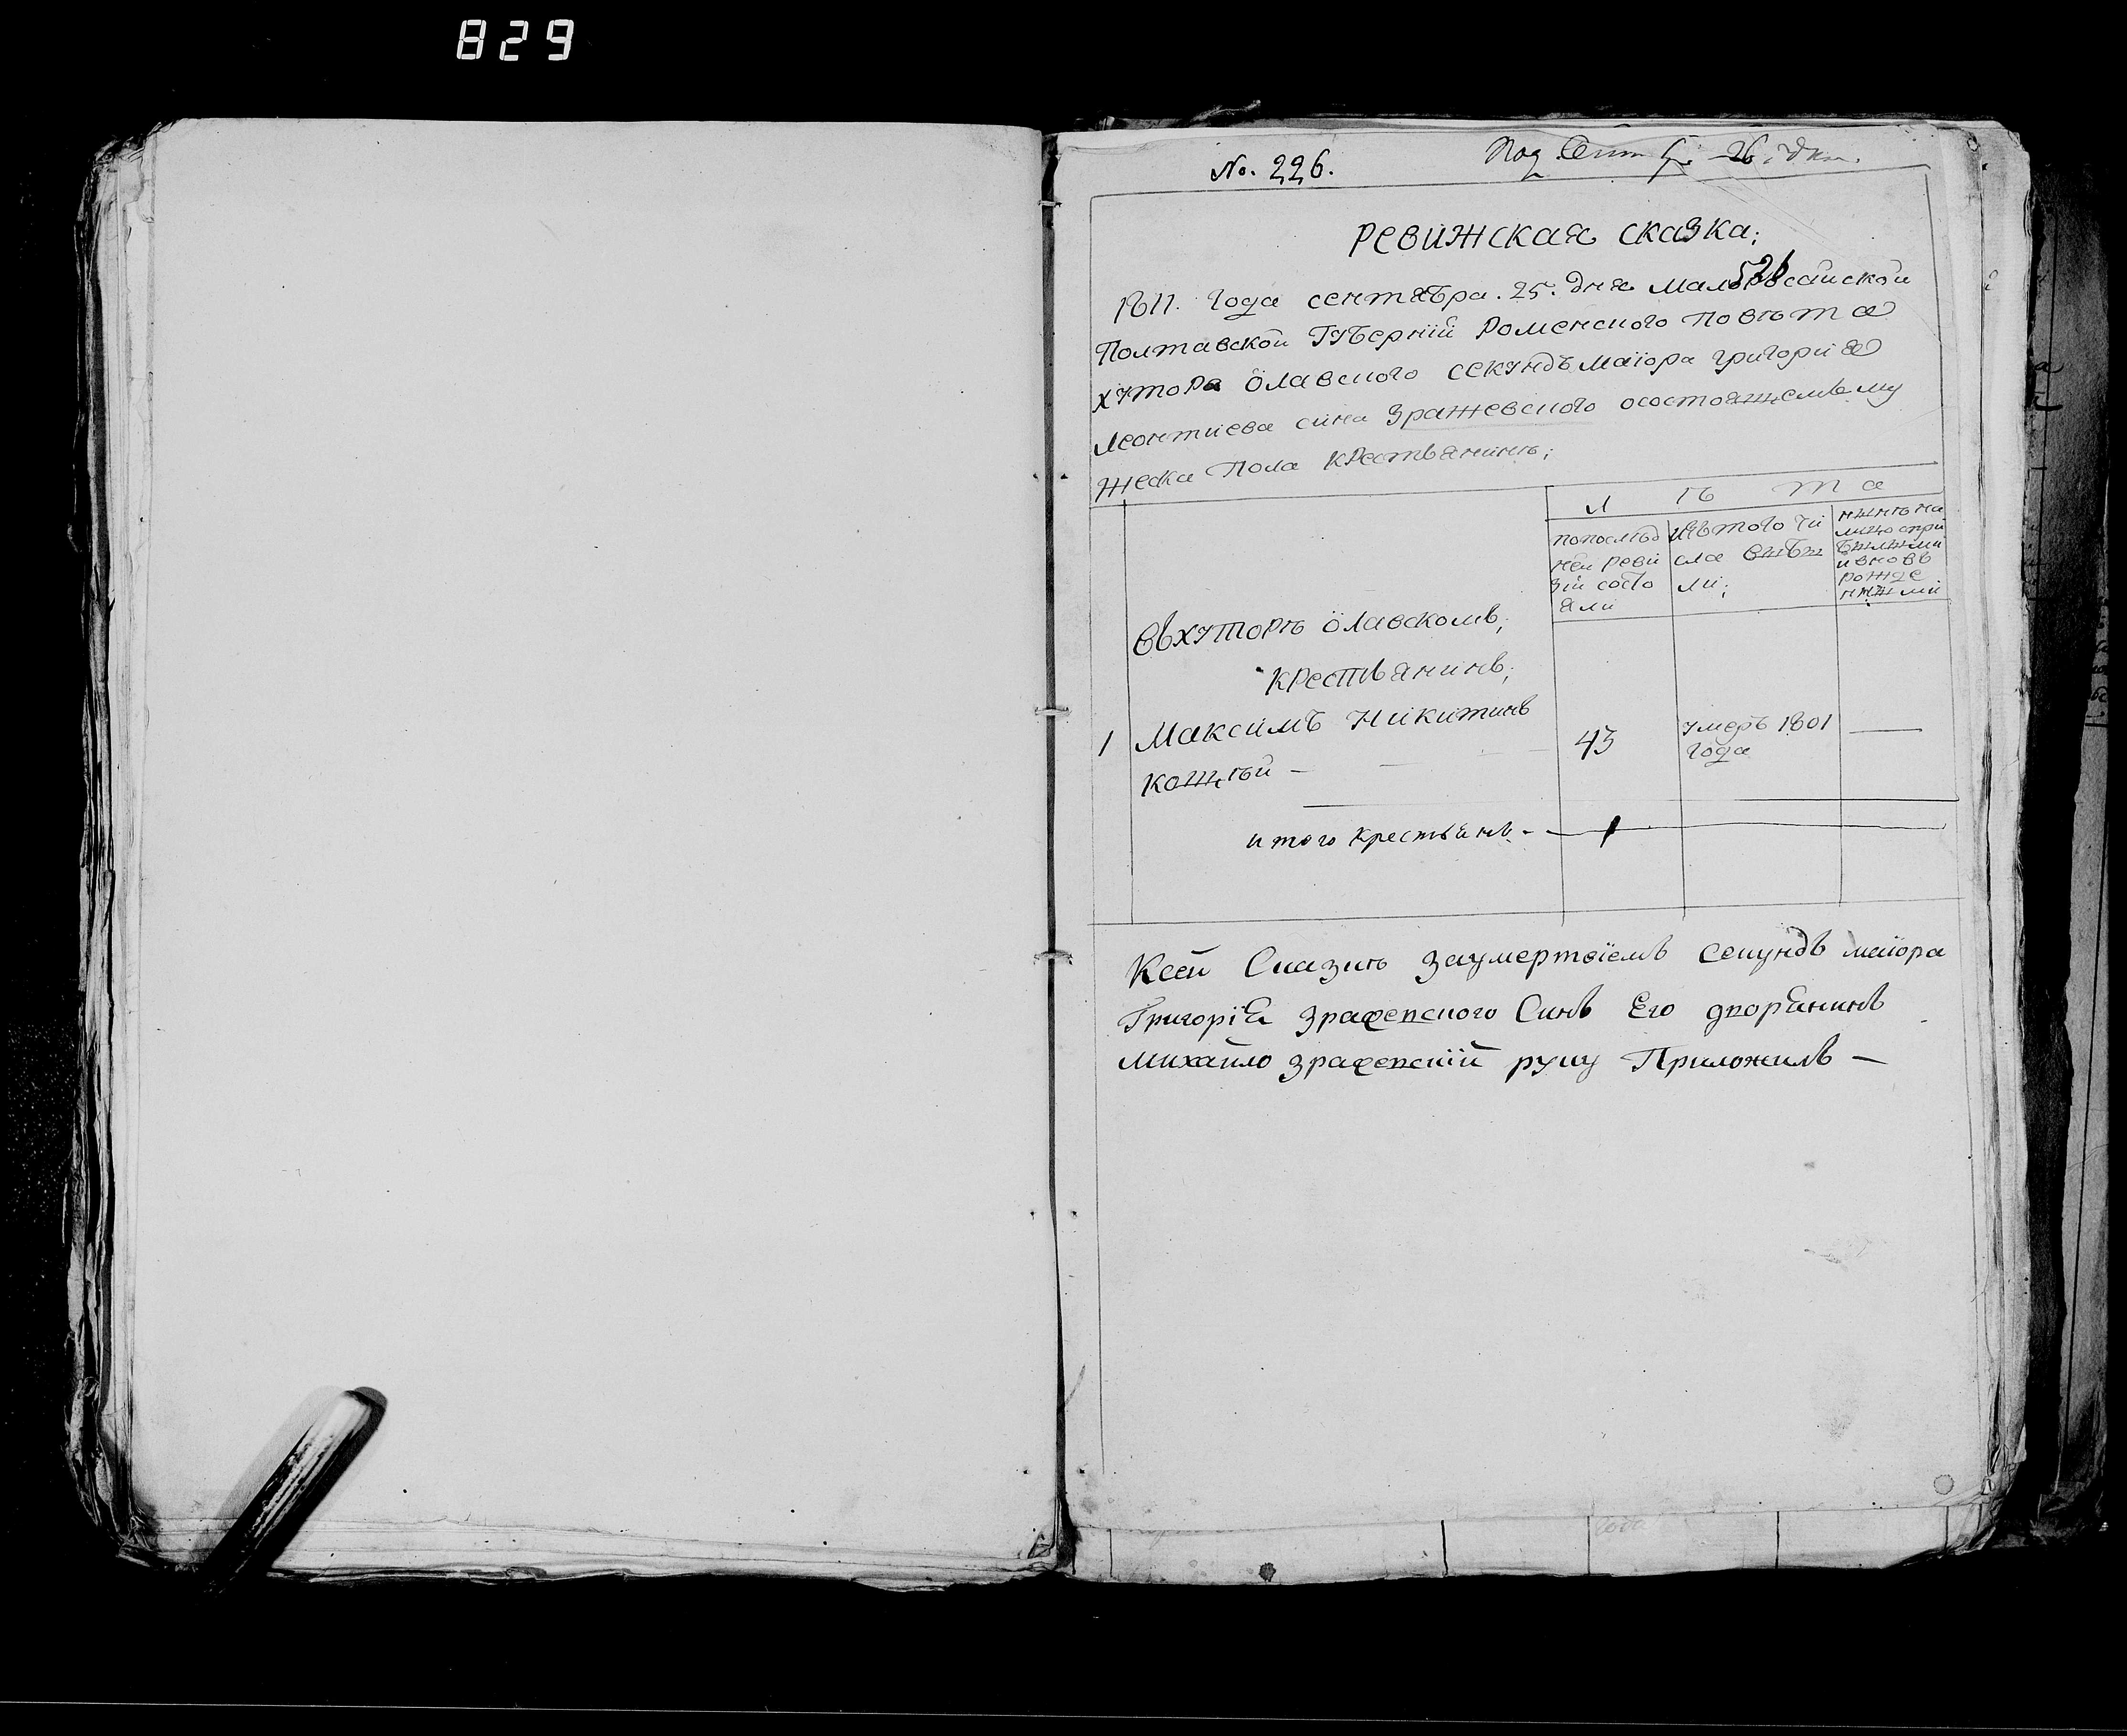 829
No. 226.
Под. Сент 26 дня.
526
Ревижская сказка;
1811. года сентября. 25. дня малоросаиской
Полтавской Губернїй Роменсного повѣта
хутора Ölавсного секундъ маїора григорія
леонтиева сина Зражевсного осостоящемъ му
жеска пола крестьянинѣ;
Лѣта
попослѣд
ней реви
зїй состо
яли
изътого чи
сла выбы
ли;
нынѣ на
лицо спри
былыми
ивновь
рожде
ными
въхуторѣ Ölавскомъ;
крестьянинъ;
1 Максимъ Никитинъ 43 умеръ 1801 —
года
кощѣй —
итого крестьянъ — 1
Ксей Сказкѣ заумертвїемъ секундъ маїора
Григорїя Зражевсного Синъ Его дворянинъ
Михайло Зражевскїй руку Приложилъ —